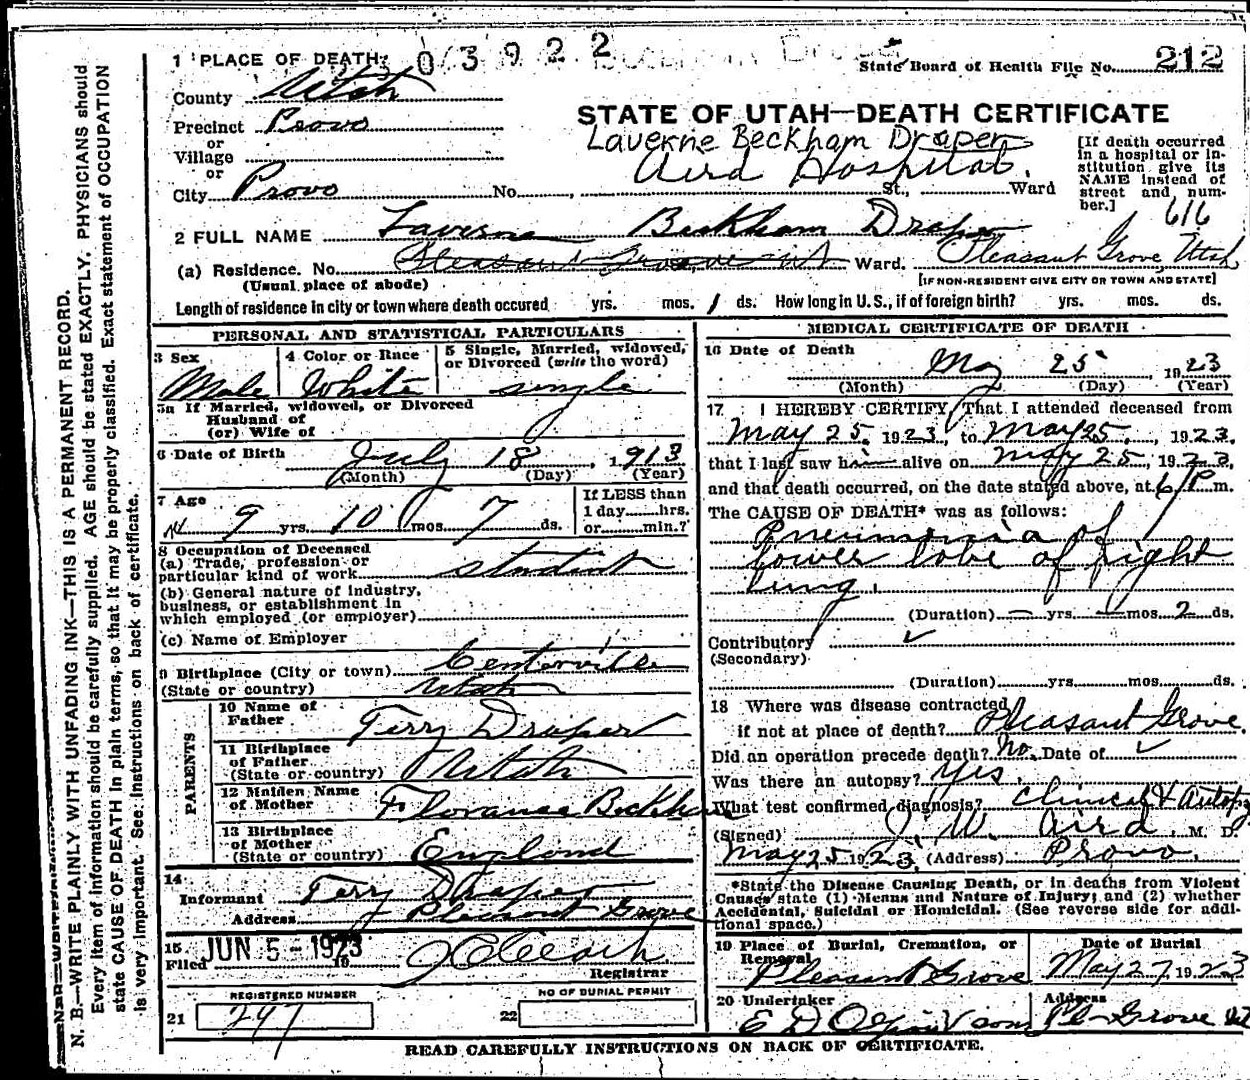 03922
State Board of Health File No. 212
1 PLACE OF DEARTH:
County Utah
STATE OF UTAH—DEATH CERTIFICATE
Precinct Provo
Laverne Beckham Draper
or
Village
or
Aird Hospital.
City Provo No. , St., Ward
[If death occurred
in a hospital or in-
stitution give its
NAME instead of
street and num-
ber.]
616
2 FULL NAME Laverne Beckham Draper
(a) Residence. No. Pleasant Grove Ut Ward. Pleasant Grove Utah
(Usual place of abode) [IF NON-RESIDENT GIVE CITY OR TOWN AND STATE]
Length of residence in city or town where death occured yrs. mos. 1 ds. How long in U.S., if of foreign birth? yrs. mos. ds.
PERSONAL AND STATISTICAL PARTICULARS
3 Sex
Male
4 Color or Race
White
5 Single, Married, widowed,
or Divorced (write the word)
single
5a If Married, widowed, or Divorced
Husband of
(or) Wife of
6 Date of Birth July 18, 1913
(Month) (Day) (Year)
7 Age
9 yrs. 10 mos. 7 ds.
If LESS than
1 day hrs.
or min.?
8 Occupation of Deceased
(a) Trade, profession or
particular kind of work student
(b) General nature of industry,
business, or establishment in
which employed (or employer)
(c) Name of Employer
9 Birthplace (City or town) Centerville
(State or country) Utah
PARENTS
10 Name of
Father Terry Draper
11 Birthplace
of Father
(State or country) Utah
12 Maiden Name
of Mother Florance Beckham
13 Birthplace
of Mother
(State or country) England
14
Informant Terry Draper
Address Pleasant Grove
15
Filed JUN 5 - 1923 19
Registrar
REGISTERED NUMBER
21 247
NO OF BURIAL PERMIT
22
MEDICAL CERTIFICATE OF DEATH
16 Date of Death
May 25, 1923
(Month) (Day) (Year)
17 I HEREBY CERTIFY, That I attended deceased from
May 25, 1923, to May 25, 1923,
that I last saw him alive on May 25, 1923,
and that death occurred, on the date stated above, at 6 P m.
The CAUSE OF DEATH* was as follows:
Pneumonia of
lower lobe of right
lung.
(Duration) — yrs. — mos. 2 ds.
Contributory ✓
(Secondary)
(Duration) yrs. mos. ds.
18 Where was disease contracted
if not at place of death? Pleasant Grove.
Did an operation precede death? No. Date of ✓
Was there an autopsy? Yes.
What test confirmed diagnosis? Clinical & Autopsy
(Signed) J. W. Aird, M. D.
May 25 1923 (Address) Provo.
*State the Disease Causing Death, or in deaths from Violent
Causes state (1) Means and Nature of Injury; and (2) whether
Accidental, Suicidal or Homicidal. (See reverse side for addi-
tional space.)
19 Place of Burial, Cremation, or
Removal
Pleasant Grove
Date of Burial
May 27, 1923
20 Undertaker
Address
Pl. Grove Ut
READ CAREFULLY INSTRUCTIONS ON BACK OF CERTIFICATE.
N. B.—WRITE PLAINLY WITH UNFADING INK—THIS IS A PERMANENT RECORD.
Every item of information should be carefully supplied. AGE should be stated EXACTLY. PHYSICIANS should
state CAUSE OF DEATH in plain terms, so that it may be properly classified. Exact statement of OCCUPATION
is very important. See instructions on back of certificate.